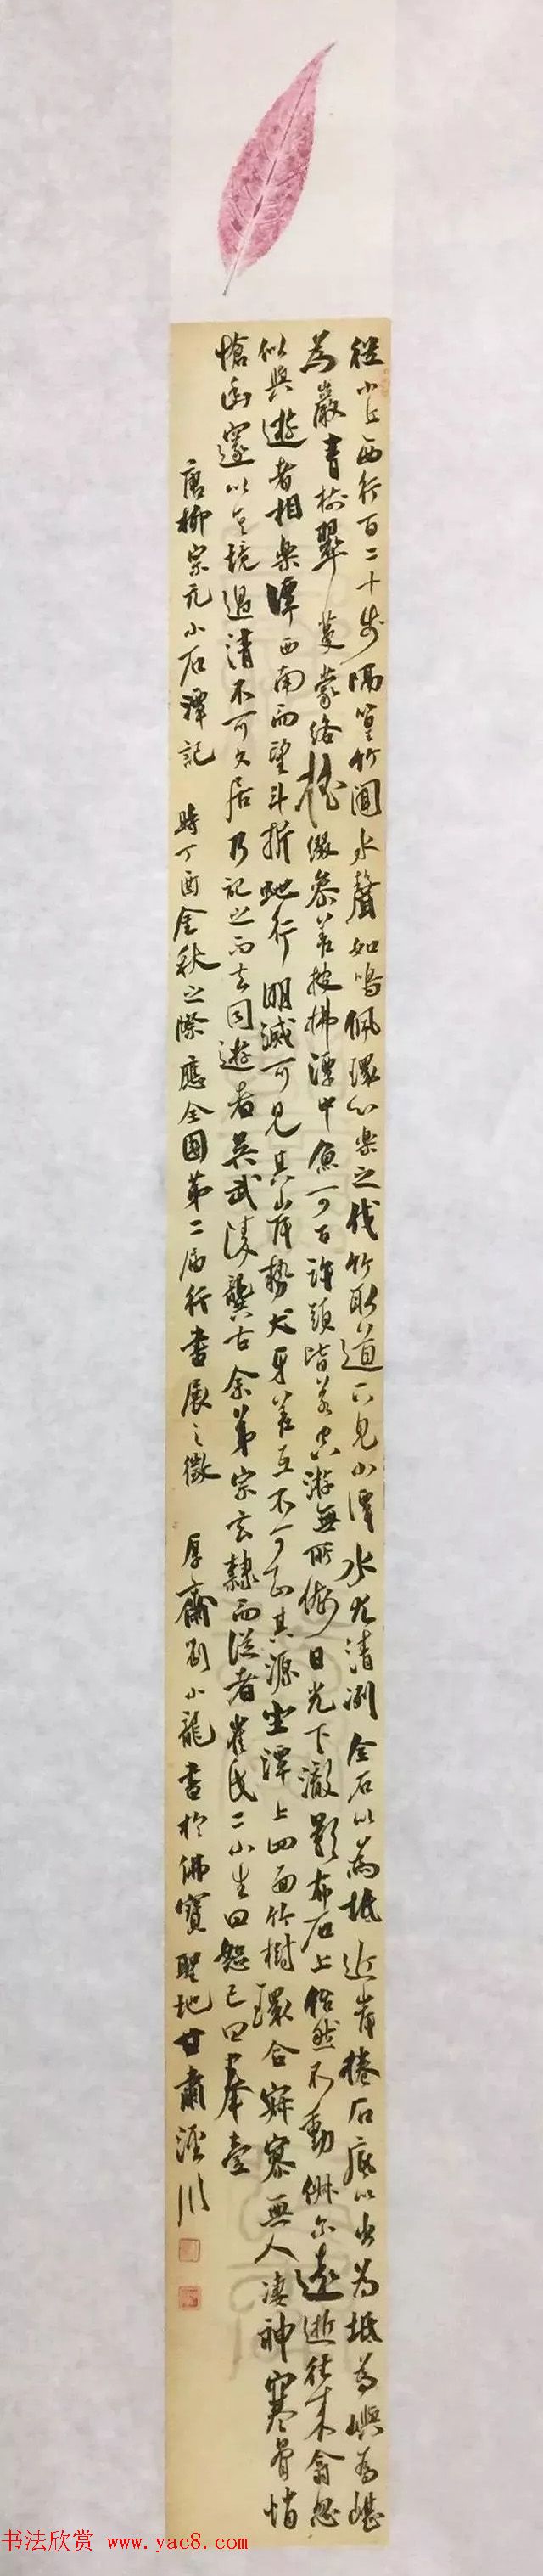 從小丘西行百二十步隔篁竹聞水聲如鳴佩環心樂之伐竹取道下見小潭水尤清冽全石以為坻近岸捲石底以出為坻為嶼為嵁
為巖青樹翠蔓蒙絡搖綴參差披拂潭中魚可百許頭皆若空游無所依日光下澈影布石上佁然不動俶爾遠逝往來翕忽
似與遊者相樂潭西南而望斗折蛇行明滅可見其岸勢犬牙差互不可知其源坐潭上四面竹樹環合寂寥無人凄神寒骨悄
愴幽邃以其境過清不可久居乃記之而去同遊者吳武陵龔古余弟宗玄隸而從者崔氏二小生曰恕己曰奉壹
唐柳宗元小石潭記 時丁酉金秋之際應全國第二屆行書展之徵 厚齋劉小龍書於佛寶聖地甘肅涇川
书法欣赏 www.yac8.com